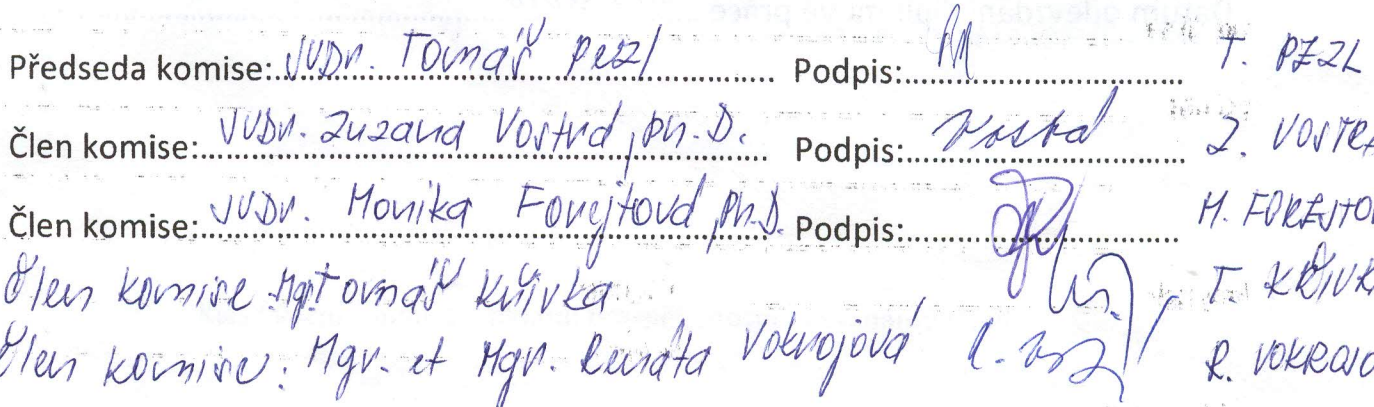 Předseda komise: JUDr. Tomáš Pezl Podpis: T. PEZL
Člen komise: JUDr. Zuzana Vostrá, Ph.D. Podpis: Vostrá Z. VOSTR
Člen komise: JUDr. Monika Forejtová, Ph.D. Podpis: M. FOREJTO
Člen komise: Mgr. Tomáš Křivka T. KŘIVK
Člen komise: Mgr. et Mgr. Renáta Vokrojová R. VOKROJO